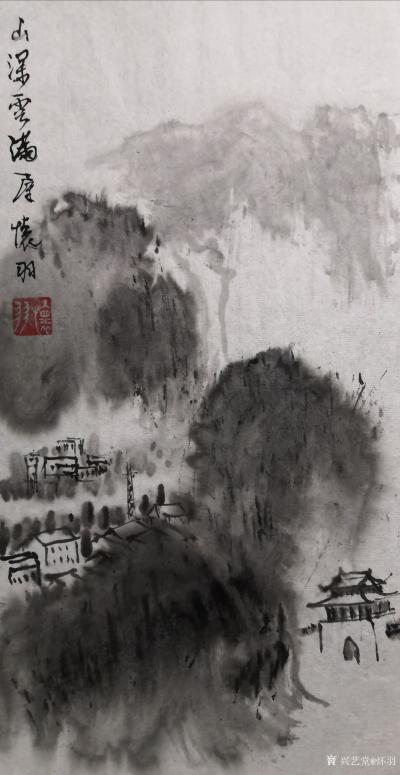 山深雲满屋懷羽
兴艺堂@怀羽